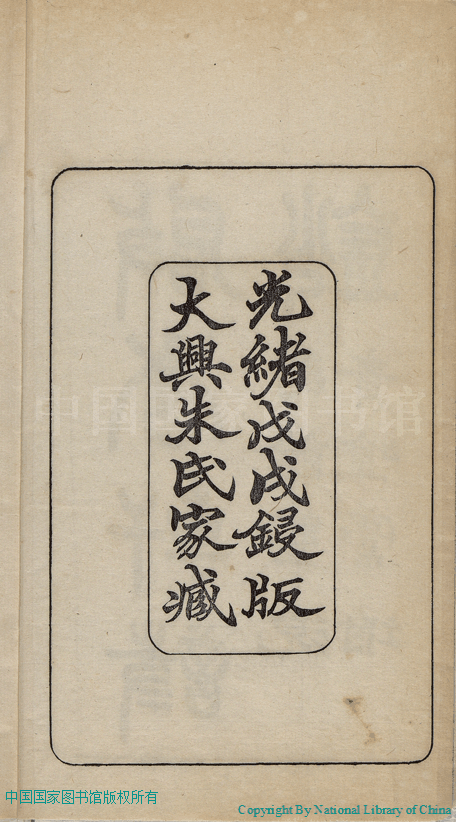 光緒戊戌鋟版
大興朱氏家臧
中国国家图书馆
中国国家图书馆版权所有
Copyright By National Library of China